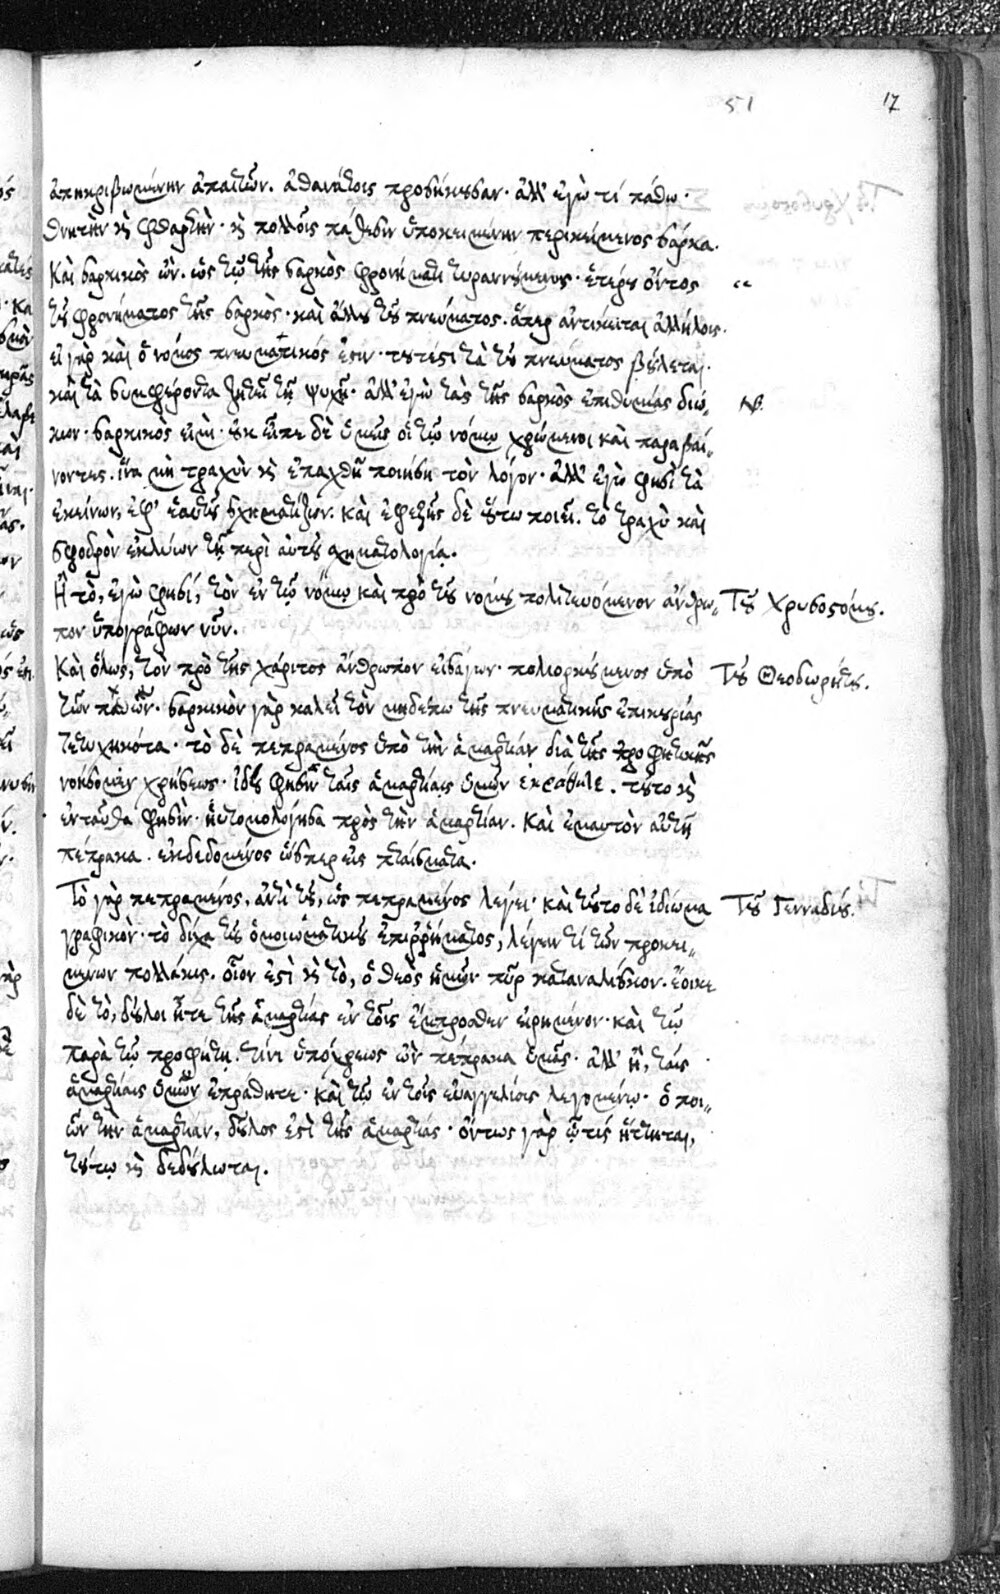 51
17
ἀπηκριβωμένην ἀπαιτῶν. ἀθανάτοις προσήκουσαν· ἀλλ' ἐγὼ τί πάθω·
θνητὴν καὶ φθαρτὴν· καὶ πολλοῖς πάθεσιν ὑποκειμένην περικείμενος σάρκα.
Καὶ σαρκικὸς ὢν. ὡς τῷ τῆς σαρκὸς φρονήματι τυραννούμενος· ἑτέρου ὄντος
τοῦ φρονήματος τῆς σαρκὸς· καὶ ἄλλου τοῦ πνεύματος. ἅπερ ἀντίκειται ἀλλήλοις.
εἰ γὰρ καὶ ὁ νόμος πνευματικός ἐστιν· τουτέστι τὰ τοῦ πνεύματος βούλεται.
καὶ τὰ συμφέροντα ζητεῖ τῇ ψυχῇ· ἀλλ' ἐγὼ τὰς τῆς σαρκὸς ἐπιθυμίας διώ„
κων· σαρκικὸς εἰμι· οὐκ εἶπε δὲ ὑμεῖς οἱ τῷ νόμῳ χρώμενοι καὶ παραβαί„
νοντες. ἵνα μὴ τραχὺν καὶ ἐπαχθῆ ποιήσῃ τὸν λόγον· ἀλλ' ἐγὼ φησὶ τὰ
ἐκείνων, ἐφ' ἑαυτοῦ σχηματίζων. καὶ ἐφεξῆς δὲ οὕτω ποιεῖ. τὸ τραχὺ καὶ
σφοδρὸν ἐκλύων τῇ περὶ αὐτοῦ σχηματολογίᾳ.
Ἢ τὸ, ἐγὼ φησί, τὸν ἐν τῷ νόμῳ καὶ πρὸ τοῦ νόμου πολιτευόμενον ἄνθρω„ Τοῦ Χρυσοστόμου.
πον ὑπογράφων νῦν.
Καὶ ὅλως, τὸν πρὸ τῆς χάριτος ἄνθρωπον εἰσάγων· πολιορκούμενος ὑπὸ Τοῦ Θεοδωρήτου.
τῶν παθῶν. σαρκικὸν γὰρ καλεῖ τὸν μηδέπω τῆς πνευματικῆς ἐπικουρίας
τετυχηκότα· τὸ δὲ πεπραμένος ὑπὸ τὴν ἁμαρτίαν διὰ τῆς προφητικῆς
νοήσομεν χρήσεως· ἰδοὺ φησὶν ταῖς ἁμαρτίαις ὑμῶν ἐπράθητε. τοῦτο καὶ
ἐνταῦθα φησὶν· ηὐτομόλησα πρὸς τὴν ἁμαρτίαν. καὶ ἐμαυτὸν αὐτῇ
πέπρακα. ἐκδεδομένος ὥσπερ εἰς πταίσματα.
Τὸ γὰρ πεπραμένος, ἀντὶ τοῦ, ὡς πεπραμένος λέγει· καὶ τοῦτο δὲ ἰδίωμα Τοῦ Γενναδίου.
γραφικὸν· τὸ δίχα τοῦ ὁμοιωματικοῦ ἐπιῤῥήματος, λέγειν τί τῶν προκει„
μένων πολλάκις. οἷον ἐστὶ καὶ τὸ, ὁ θεὸς ἡμῶν πῦρ καταναλίσκον. ἔοικε
δὲ τὸ, δοῦλοι ἦτε τῆς ἁμαρτίας ἐν τοῖς ἔμπροσθεν εἰρημένον· καὶ τῷ
παρὰ τῷ προφήτῃ. τίνι ὑπόχρεως ὢν πέπρακα ὑμᾶς· ἀλλ' ἢ, ταῖς
ἁμαρτίαις ὑμῶν ἐπράθητε· καὶ τῷ ἐν τοῖς εὐαγγελίοις λεγομένῳ· ὁ ποι„
ῶν τὴν ἁμαρτίαν, δοῦλος ἐστὶ τῆς ἁμαρτίας· ὄντως γὰρ ᾧτις ἥττηται,
τούτῳ καὶ δεδούλωται.